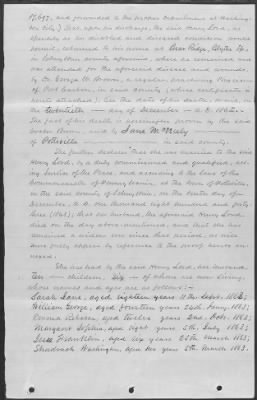 17,697, and forwarded to the
ton City.) That upon his discharge, the said Henry Lord, as
speedily as his disabled and diseased condition would
permit, returned to his home at Broad Ridge, Blythe Tp.,
in Schuylkill county aforesaid, where he remained and
was attended for the aforesaid disease and wounds,
by Dr. George W. Brown, a regular, practicing Physician
of Port Carbon, in said county (whose certificate is
hereto attached) till the date of his death, which, in
the day of A. D.
The fact of his death is
Doctor Brown, and by Jane M
of Pottsville in said county.
She further declares that she was married to the said
Henry Lord, by a duly commissioned and qualified, acting
Justice of the Peace, and according to the laws of the
Commonwealth of Pennsylvania, at the town of Pottsville,
in the said county of Schuylkill, on the tenth day of
December, A. D. one thousand eight hundred and forty-
(184 ); that her husband, the aforesaid Henry Lord,
died on the day above mentioned, and that she has
remained a widow ever since that period, as will
more fully appear by reference to the proof hereto annexed.
She has had by the said Henry Lord, her husband,
Ten children, Six of whom are now living,
whose names and ages are as follows:-
Sarah Jane, aged eighteen years 11th Septr. 1862;
William George, aged fourteen years 24th Jany. 1863;
Emma Rebecca, aged twelve years 2nd. Octr. 1862;
Margaret Sophia, aged eight years 5th. July 1863;
Jesse Franklin, aged six years 25th March 1863;
Shadrach Washington, aged two years 8th. March 1863.